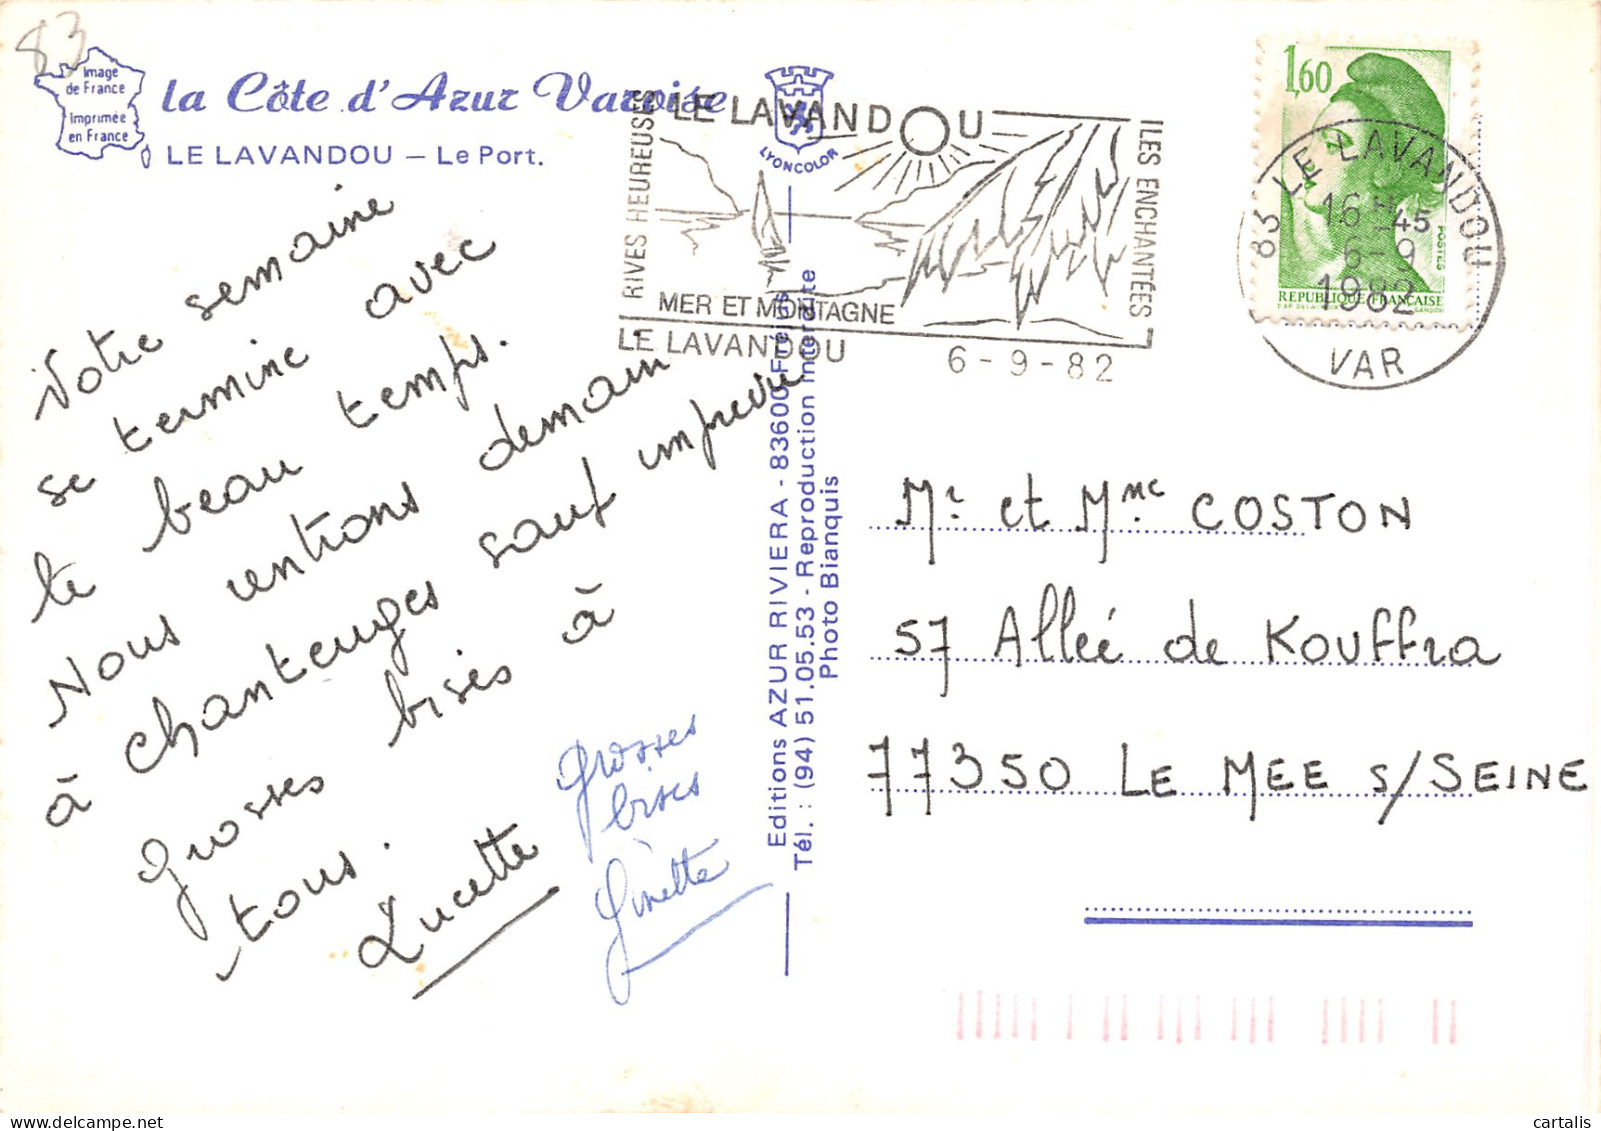 83
Image
de France
Imprimée
en France
la Côte d'Azur Varoise
LE LAVANDOU – Le Port.
LYONCOLOR
RIVES HEUREUSES
LE LAVANDOU
ILES ENCHANTÉES
MER ET MONTAGNE
LE LAVANDOU
6-9-82
1,60
POSTES
REPUBLIQUE FRANCAISE
GANDON
83 LE LAVANDOU
16 H 45
6-9
1982
VAR
Votre semaine
se termine avec
le beau temps.
Nous rentrons demain
à Chanteuges sauf imprévu.
Grosses bises à
tous.
Lucette
Grosses
bises
Ginette
Editions AZUR RIVIERA - 83600 Fréjus
Tél. : (94) 51.05.53 - Reproduction interdite
Photo Bianquis
Mr. et Mme. COSTON
57 Allée de Kouffra
77350 LE MEE s/SEINE
cartalis